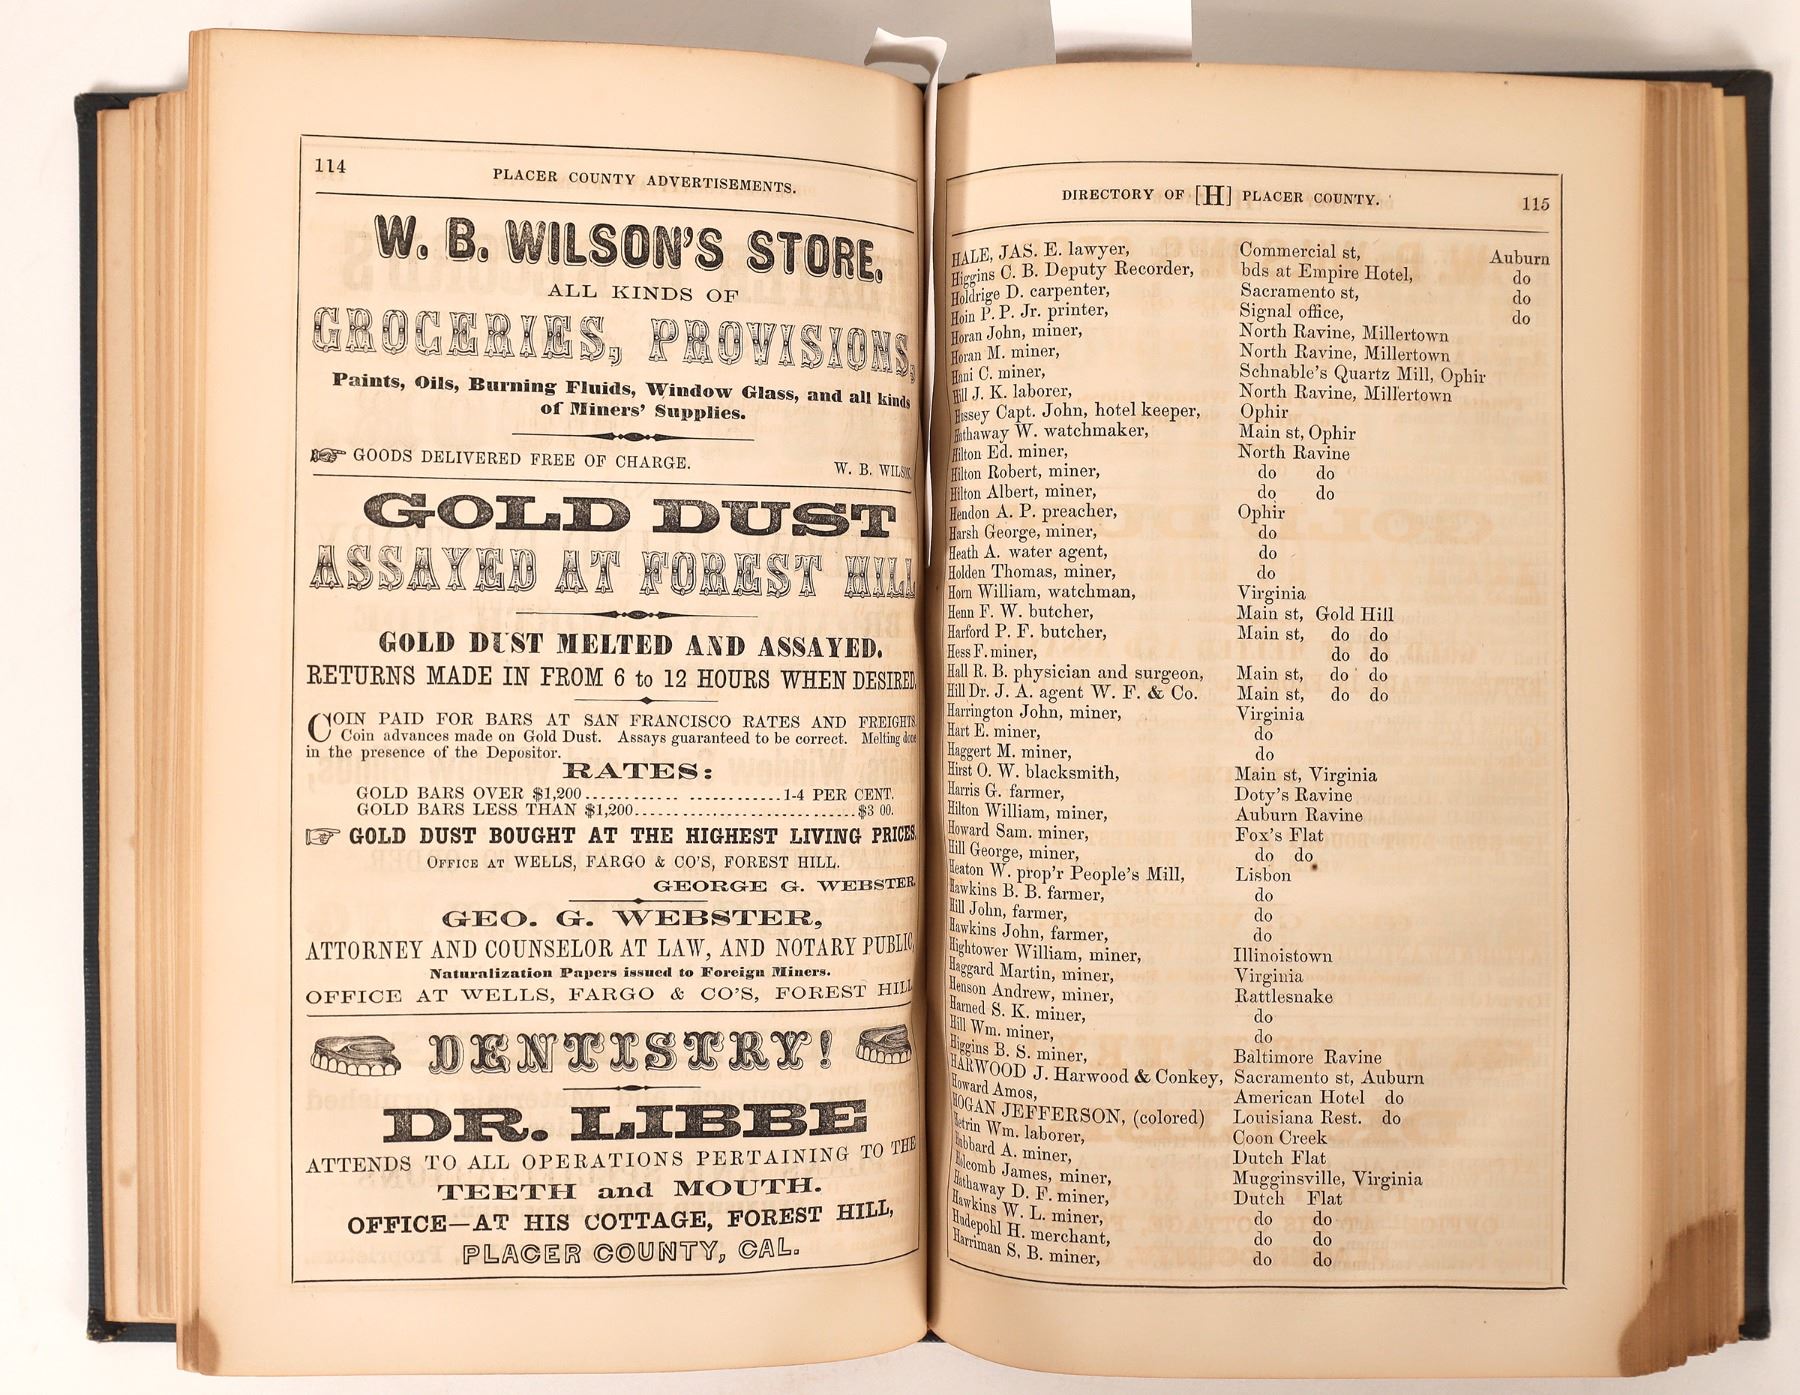 114
PLACER COUNTY ADVERTISEMENTS.
W. B. WILSON'S STORE.
ALL KINDS OF
GROCERIES, PROVISIONS,
Paints, Oils, Burning Fluids, Window Glass, and all kinds
of Miners' Supplies.
GOODS DELIVERED FREE OF CHARGE. W. B. WILSON
GOLD DUST
ASSAYED AT FOREST HILL
GOLD DUST MELTED AND ASSAYED.
RETURNS MADE IN FROM 6 to 12 HOURS WHEN DESIRED.
COIN PAID FOR BARS AT SAN FRANCISCO RATES AND FREIGHTS.
Coin advances made on Gold Dust. Assays guaranteed to be correct. Melting done
in the presence of the Depositor.
RATES:
GOLD BARS OVER $1,200............ ............1-4 PER CENT.
GOLD BARS LESS THAN $1,200.............................$3 00.
GOLD DUST BOUGHT AT THE HIGHEST LIVING PRICES.
OFFICE AT WELLS, FARGO & CO'S, FOREST HILL.
GEORGE G. WEBSTER.
GEO. G. WEBSTER,
ATTORNEY AND COUNSELOR AT LAW, AND NOTARY PUBLIC,
Naturalization Papers issued to Foreign Miners.
OFFICE AT WELLS, FARGO & CO'S, FOREST HILL.
DENTISTRY!
DR. LIBBE
ATTENDS TO ALL OPERATIONS PERTAINING TO THE
TEETH and MOUTH.
OFFICE—AT HIS COTTAGE, FOREST HILL,
PLACER COUNTY, CAL.
DIRECTORY OF [H] PLACER COUNTY. 115
HALE, JAS. E. lawyer, Commercial st, Auburn
Higgins C. B. Deputy Recorder, bds at Empire Hotel, do
Holdrige D. carpenter, Sacramento st, do
Hoin P. P. Jr. printer, Signal office, do
Horan John, miner, North Ravine, Millertown
Horan M. miner, North Ravine, Millertown
Hani C. miner, Schnable's Quartz Mill, Ophir
Hill J. K. laborer, North Ravine, Millertown
Hussey Capt. John, hotel keeper, Ophir
Hathaway W. watchmaker, Main st, Ophir
Hilton Ed. miner, North Ravine
Hilton Robert, miner, do do
Hilton Albert, miner, do do
Hendon A. P. preacher, Ophir
Harsh George, miner, do
Heath A. water agent, do
Holden Thomas, miner, do
Horn William, watchman, Virginia
Henn F. W. butcher, Main st, Gold Hill
Harford P. F. butcher, Main st, do do
Hess F. miner, do do
Hall R. B. physician and surgeon, Main st, do do
Hill Dr. J. A. agent W. F. & Co. Main st, do do
Harrington John, miner, Virginia
Hart E. miner, do
Haggert M. miner, do
Hirst O. W. blacksmith, Main st, Virginia
Harris G. farmer, Doty's Ravine
Hilton William, miner, Auburn Ravine
Howard Sam. miner, Fox's Flat
Hill George, miner, do do
Heaton W. prop'r People's Mill, Lisbon
Hawkins B. B. farmer, do
Hill John, farmer, do
Hawkins John, farmer, do
Hightower William, miner, Illinoistown
Haggard Martin, miner, Virginia
Henson Andrew, miner, Rattlesnake
Harned S. K. miner, do
Hill Wm. miner, do
Higgins B. S. miner, Baltimore Ravine
HARWOOD J. Harwood & Conkey, Sacramento st, Auburn
Howard Amos, American Hotel do
HOGAN JEFFERSON, (colored) Louisiana Rest. do
Wm. laborer, Coon Creek
Hubbard A. miner, Dutch Flat
Holcomb James, miner, Mugginsville, Virginia
Hathaway D. F. miner, Dutch Flat
Hawkins W. L. miner, do do
Hudepohl H. merchant, do do
Harriman S. B. miner, do do